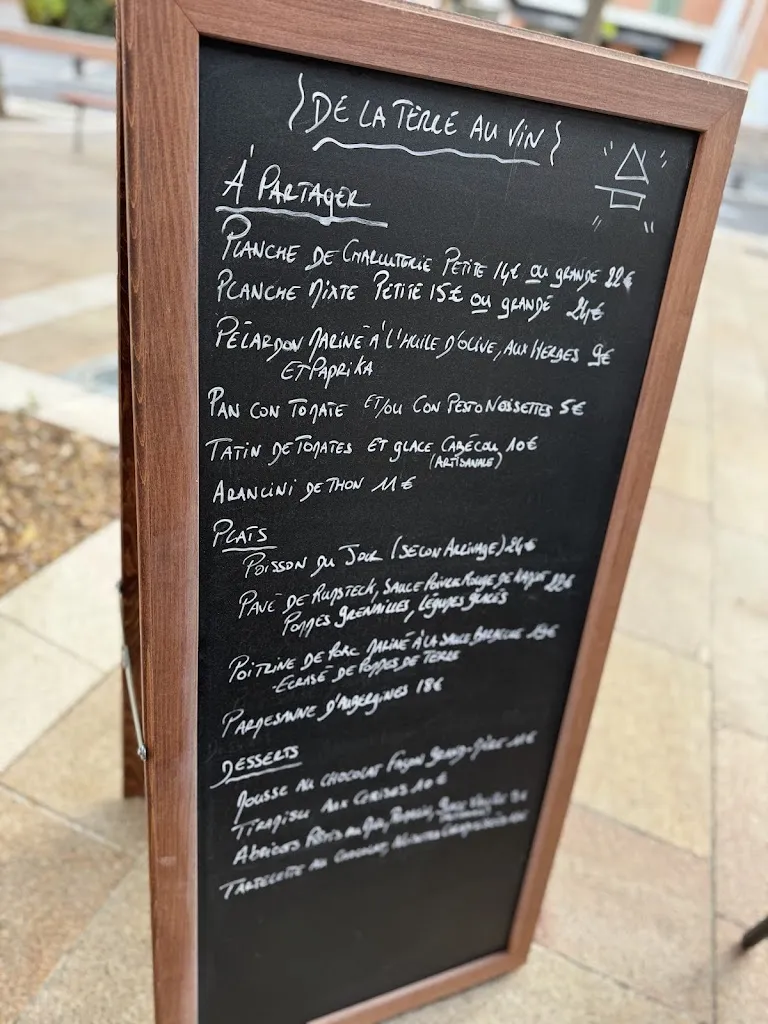 DE LA TERRE AU VIN
À PARTAGER
PLANCHE DE CHARCUTERIE PETITE 14€ OU GRANDE 22€
PLANCHE MIXTE PETITE 15€ OU GRANDE 24€
PÉLARDON MARINÉ À L'HUILE D'OLIVE, AUX HERBES 9€
ET PAPRIKA
PAN CON TOMATE ET/OU CON PESTO NOISETTES 5€
TATIN DE TOMATES ET GLACE CABÉCOU 10€
(ARTISANALE)
ARANCINI DE THON 11€
PLATS
POISSON DU JOUR (SELON ARRIVAGE) 24€
PAVÉ DE RUMSTECK, SAUCE POIVRE ROUGE DE KAMPOT 22€
POMMES GRENAILLES, LÉGUMES GLACÉS
POITRINE DE PORC MARINÉ À LA SAUCE BARBECUE
- ÉCRASÉ DE POMMES DE TERRE
PARMESANNE D'AUBERGINES 18€
DESSERTS
MOUSSE AU CHOCOLAT FAÇON GRAND-MÈRE
TIRAMISU AUX CERISES 10€
ABRICOTS RÔTIS AU
TARTELETTE AU CHOCOLAT,